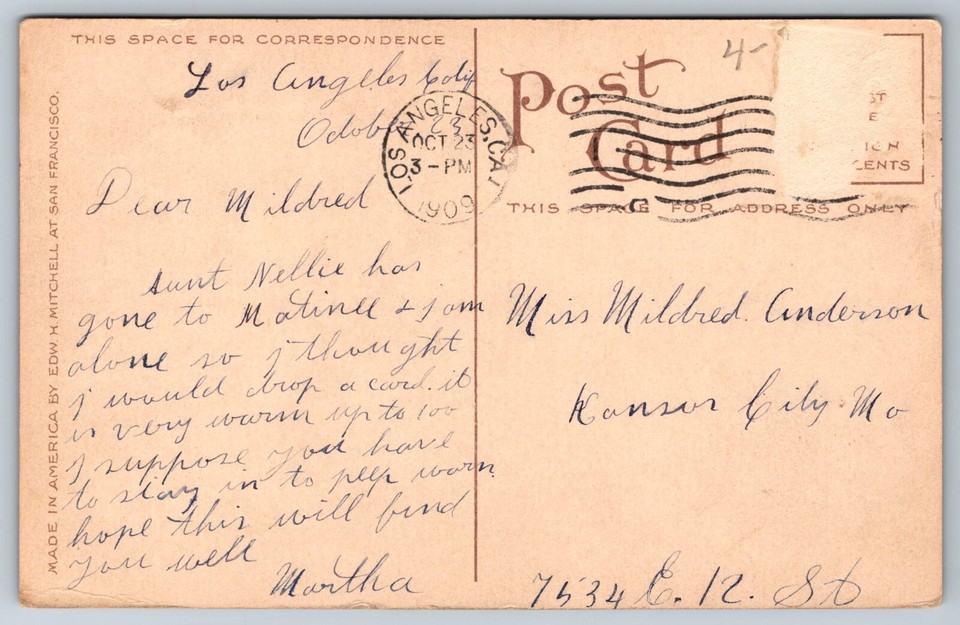 THIS SPACE FOR CORRESPONDENCE
Los Angeles Calif
23
Dear Mildred
Aunt Nellie has
gone to Matinee & j am
alone so j thought
j would drop a card. it
is very warm up to 100
j suppose you have
to stay in to peep warm
hope this will find
you well
Martha
MADE IN AMERICA BY EDW. H. MITCHELL AT SAN FRANCISCO.
LOS ANGELES, CAL
OCT 23
3-PM
1909
4-
Post
Card
CENTS
THIS SPACE FOR ADDRESS ONLY
Miss Mildred. Anderson
Kansas City Mo
7534 E. 12. St